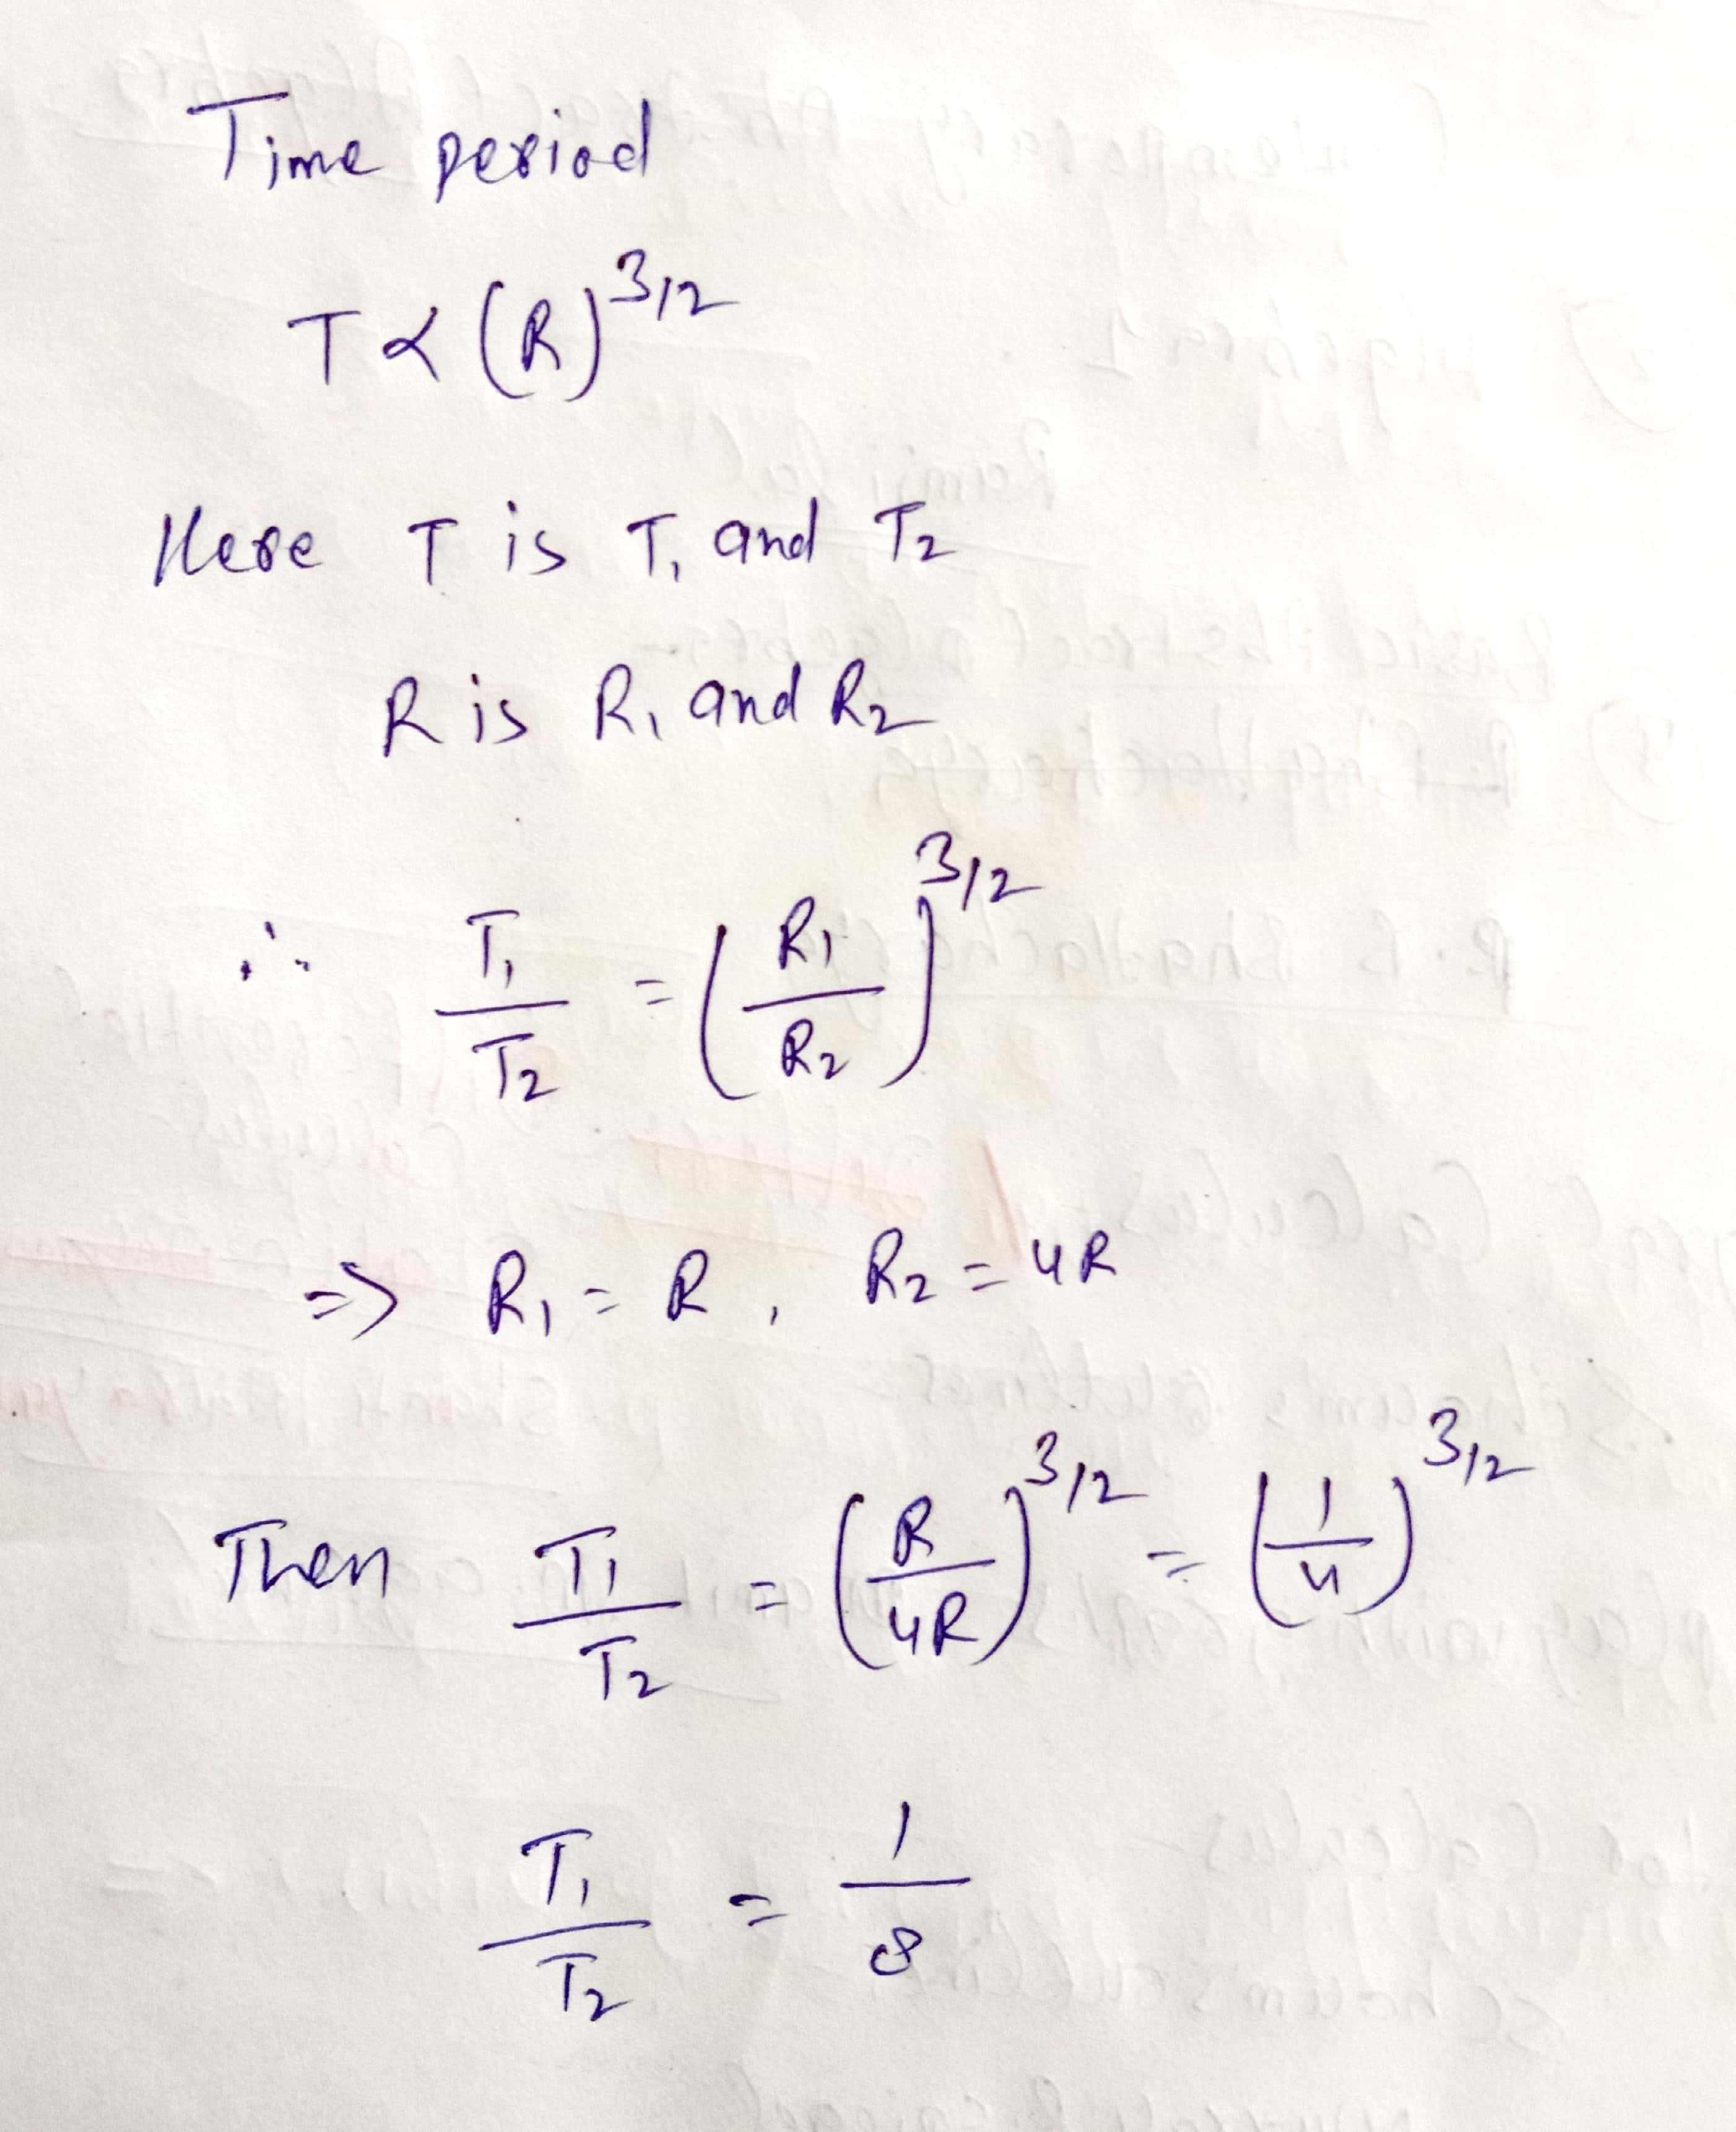 Time period
T ∝ (R)^3/2
Here T is T₁ and T₂
R is R₁ and R₂
∴ T₁/T₂ = (R₁/R₂)^3/2
=> R₁ = R, R₂ = 4R
Then T₁/T₂ = (R/4R)^3/2 = (1/4)^3/2
T₁/T₂ = 1/8